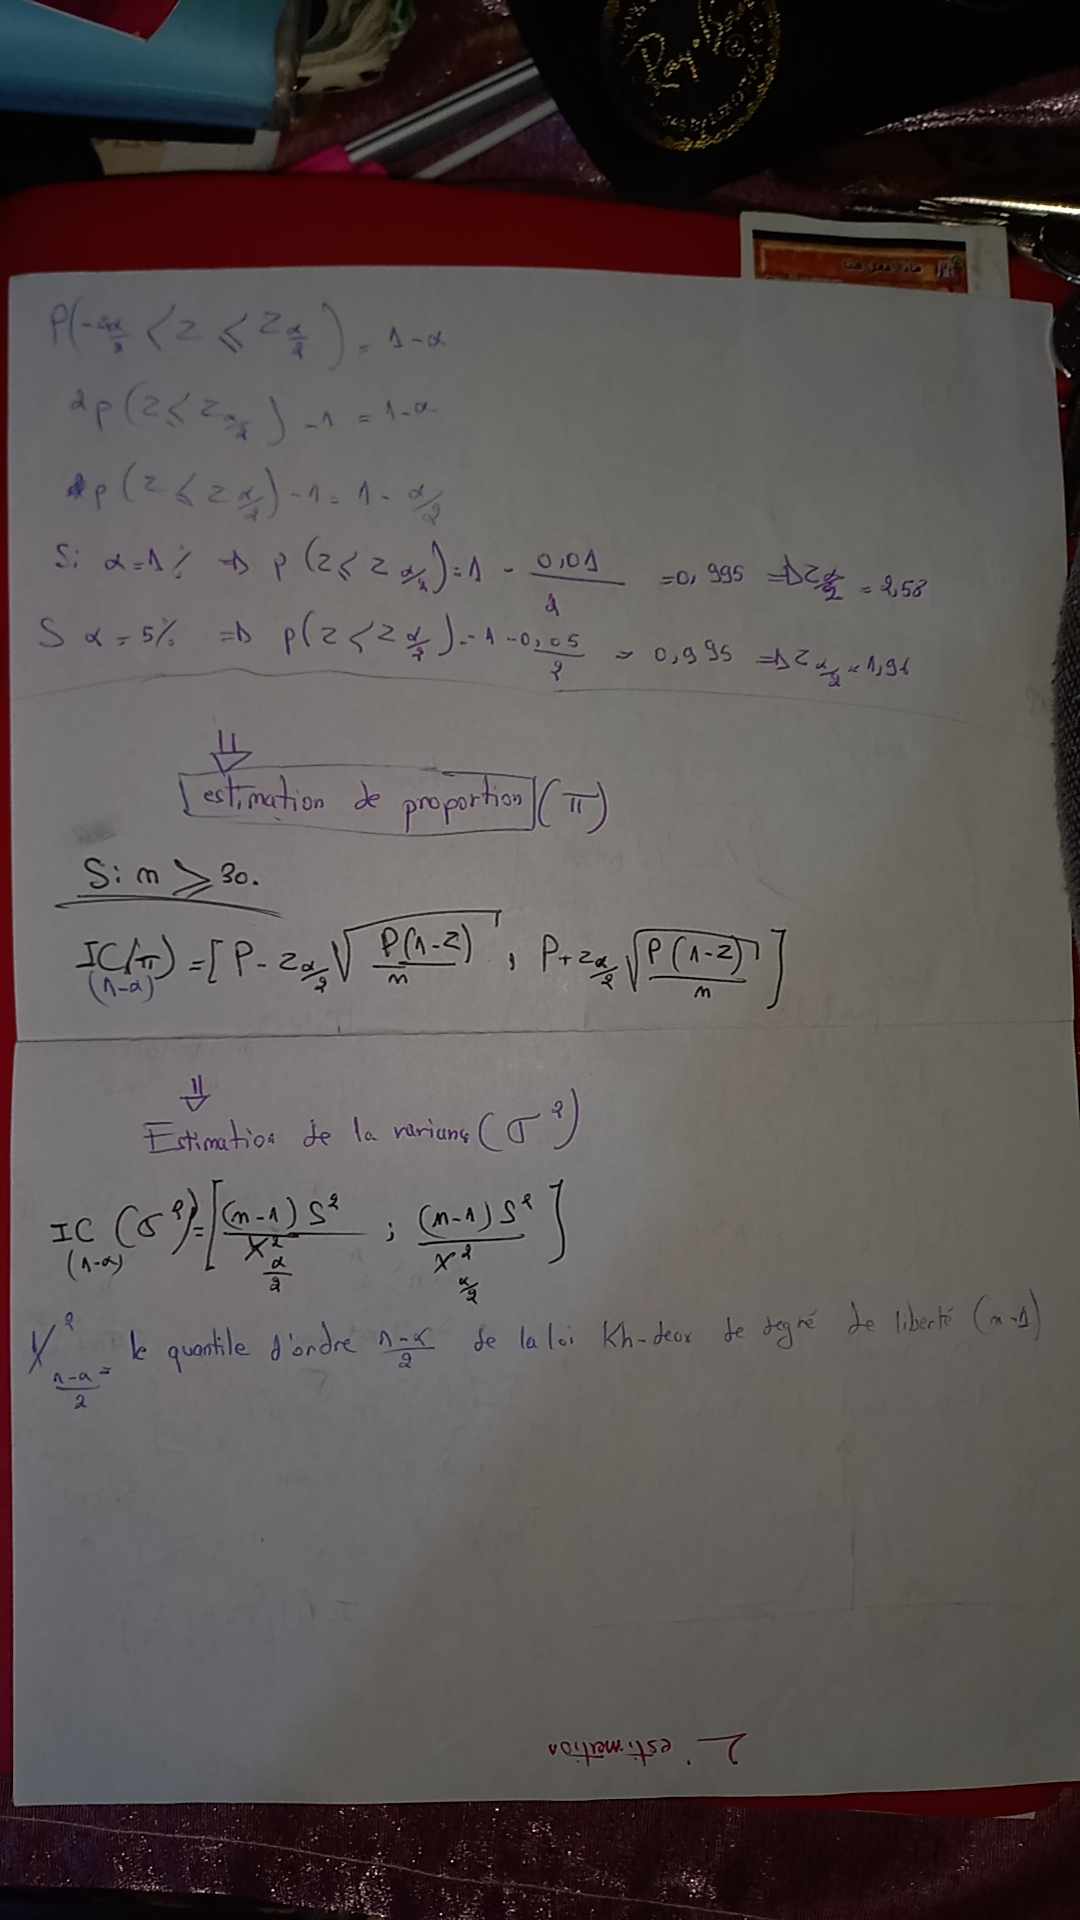 P(-zα/2 < z ⩽ zα/2) = 1-α
2p(z ⩽ zα/2) -1 = 1-α
2p(z ⩽ zα/2) -1 = 1 - α/2
Si α=1% => p(z ⩽ zα/2) = 1 - 0,01/2 = 0,995 => zα/2 = 2,58
S α = 5% => p(z < zα/2) = 1 - 0,05/2 = 0,995 => zα/2 = 1,96
⇓
estimation de proportion (π)
Si n ⩾ 30.
IC(π) = [P - zα/2 √(P(1-z)/n) , P + zα/2 √(P(1-z)/n)]
(1-α)
⇓
Estimation de la varianc (σ²)
IC (σ²) = [(n-1)S²/X²α/2 ; (n-1)S²/X²α/2]
(1-α)
X²1-α/2 = le quantile d'ordre 1-α/2 de la loi Kh-deux de degré de liberté (n-1)
L'estimation